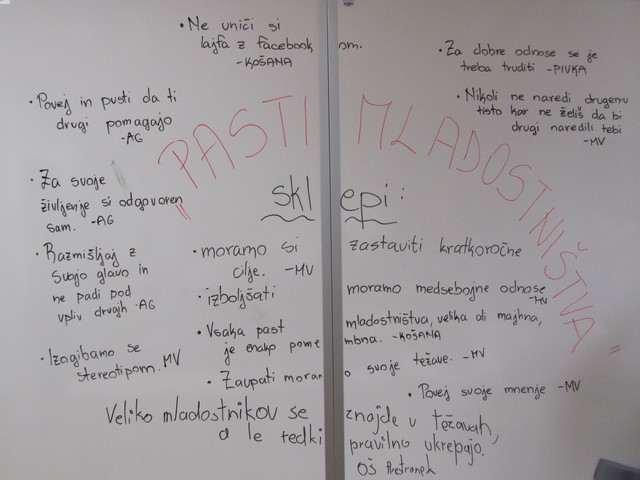 • Ne uniči si
lajfa z facebookom.
-KOŠANA
• Za dobre odnose se je
treba truditi -PIVKA
• Povej in pusti da ti
drugi pomagajo
-AG
• Nikoli ne naredi drugemu
tisto kar ne želiš da bi
drugi naredili tebi
-MV
"PASTI MLADOSTNIŠTVA"
sklepi:
• Za svoje
življenje si odgovoren
sam. -AG
• Razmišljaj z
svojo glavo in
ne padi pod
vpliv drugih -AG
• Izogibamo se
stereotipom. MV
• moramo si zastaviti kratkoročne
cilje. -MV
• izboljšati moramo medsebojne odnose
-MV
• Vsaka past mladostništva, velika ali majhna,
je enako pomembna. -KOŠANA
• Zaupati moramo svoje težave. -MV
• Povej svoje mnenje -MV
Veliko mladostnikov se znajde v težavah,
a le tedki pravilno ukrepajo.
OŠ Prestranek